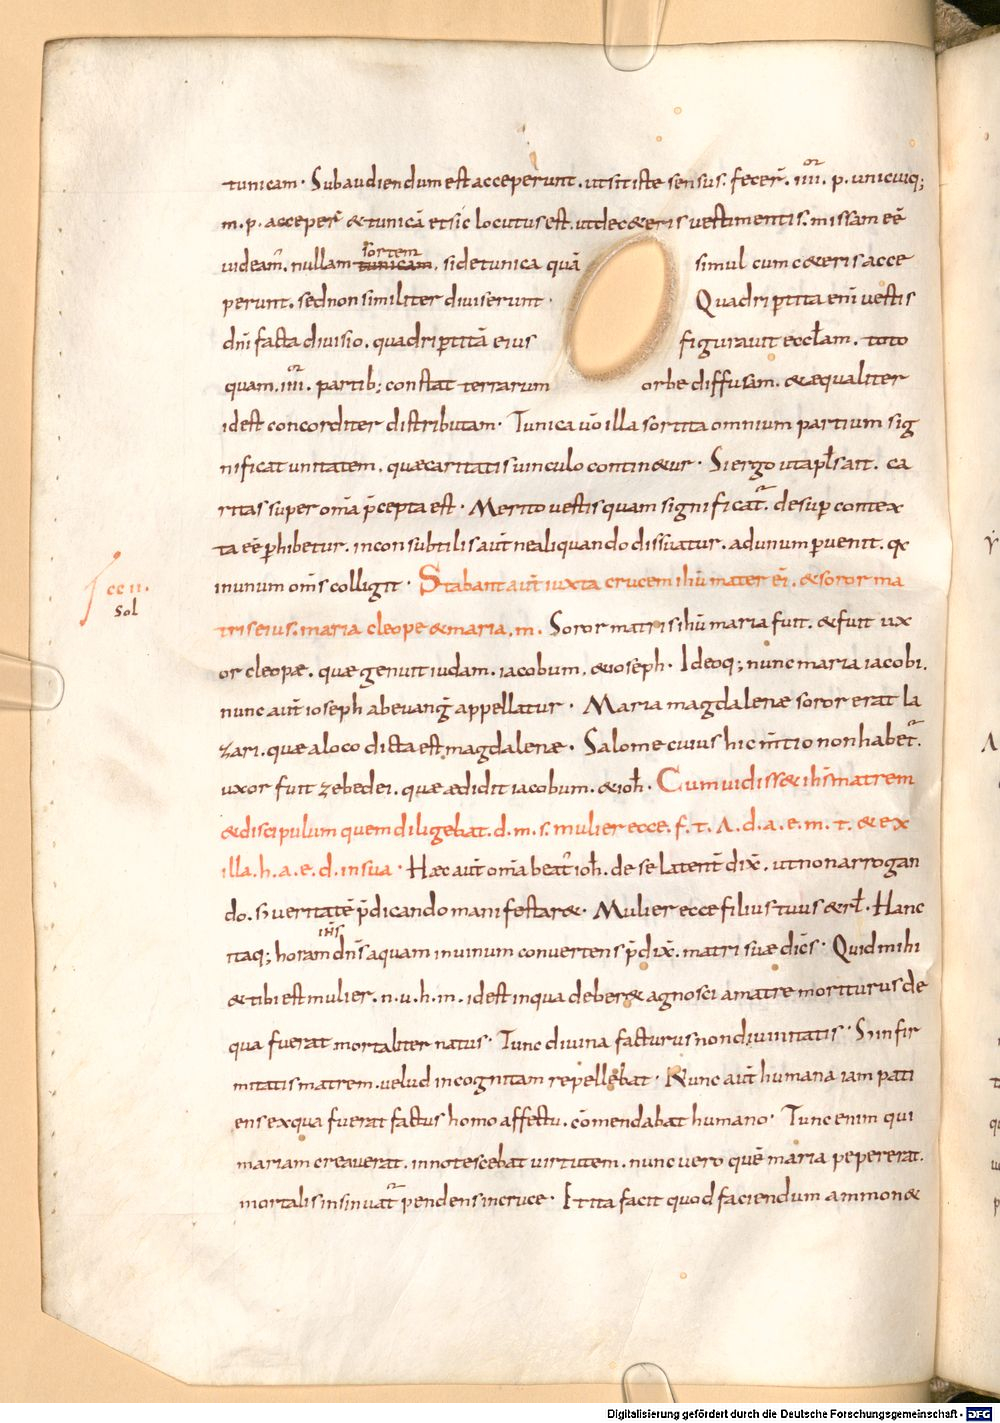 tunicam. Subaudiendum est acceperunt. ut sit iste sensus. fecer̄. iiii.or p. unicuiq;
m. p. acceper̄ & tunicā et sic locutus est. ut de c&eris uestimentis. missam eē
uideam̄. nullam tunicam sortem. si de tunica quā simul cum c&eris acce
perunt. sed non similiter diuiserunt. Quadripertita eni uestis
dn̄i facta diuisio. quadripertitā eius figurauit eccl̄am. toto
quam. iiii.or partib; constat terrarum orbe diffusam. & æqualiter
id est concorditer distributam. Tunica ūo illa sortita omnium partium sig
nificat unitatem. quæ caritatis uinculo contin&ur. Si ergo ut apl̄s ait. ca
ritas super om̄a p̄cepta est. Merito uestis quam significat̄. desup contex
ta eē phibetur. inconsubtilis aut̄ ne aliquando dissuatur. ad unum puenit. q
in unum om̄s colligit. Stabant aut̄ iuxta crucem ih̄u mater ei. & soror ma
ccii.
Sol
tris eius. maria cleope & maria. m. Soror matris ih̄u maria fuit. & fuit ux
or cleopæ. quæ genuit iudam. iacobum. & ioseph. Ideoq; nunc maria iacobi.
nunc aut̄ ioseph ab euanḡ appellatur. Maria magdalenæ soror erat la
zari. quæ a loco dicta est magdalenæ. Salome cuius hic m̄tio non habet̄.
uxor fuit zebedei. quæ ædidit iacobum. & ioh̄. Cum uidiss& ih̄s matrem
& discipulum quem diligebat. d. m. s. mulier ecce. f. t. A. d. a. e. m. t. & ex
illa. h. a. e. d. in sua. Hæc aut̄ om̄a beat̄ ioh̄. de se latent̄ dix̄. ut non arrogan
do. s̄ ueritatē p̄dicando manifestar&. Mulier ecce filius tuus & rl̄. Hanc
itaq; horam dn̄s ih̄s aquam in uinum conuertens p̄dix̄. matri suæ dic̄s. Quid mihi
& tibi est mulier. n. u. h. m. id est in qua deber& agnosci a matre moriturus de
qua fuerat mortaliter natus. Tunc diuina facturus non diuinitatis. S̄ infir
mitatis matrem. uelud incognitam repellebat. Nunc aut̄ humana iam pati
ens ex qua fuerat factus homo affectu. cōmendabat humano. Tunc enim qui
mariam creauerat. innotescebat uirtutem. nunc uero quē maria pepererat.
mortalis insinuat̄ pendens in cruce. Et ita facit quod faciendum ammon&
Digitalisierung gefördert durch die Deutsche Forschungsgemeinschaft - DFG